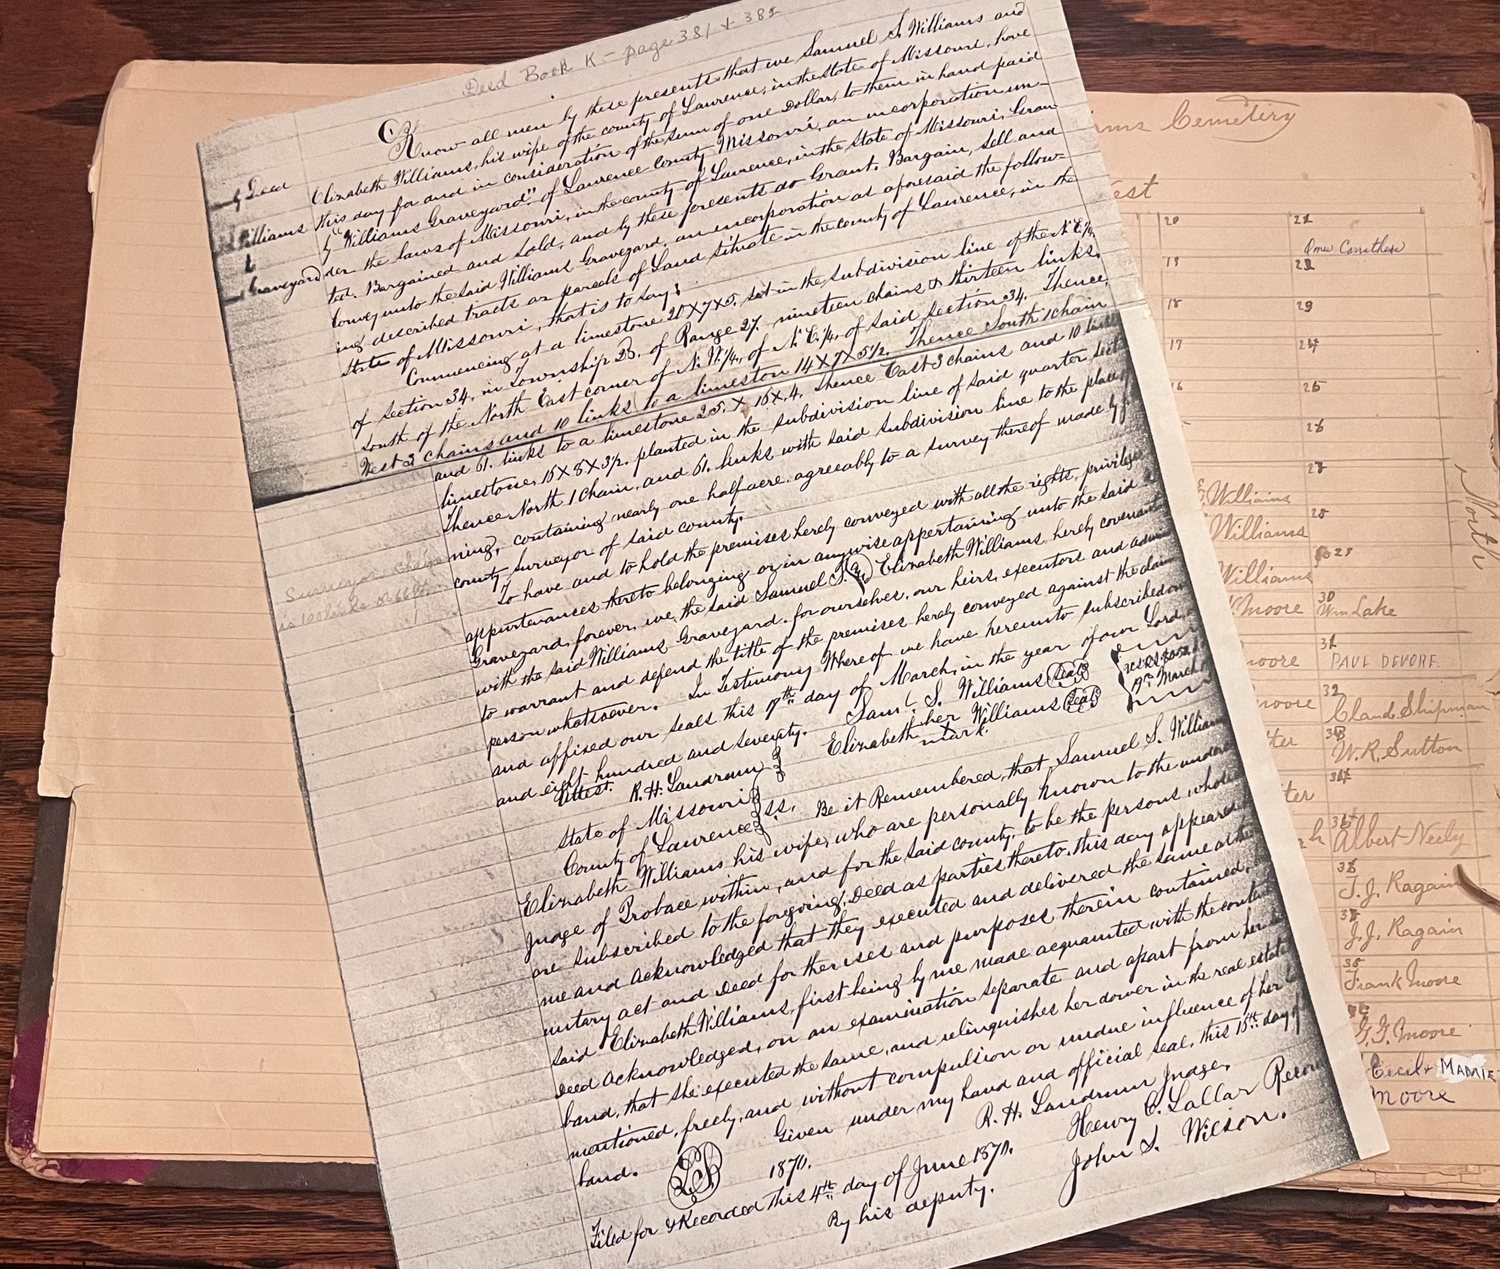 Deed Book K - page 381 + 382
Know all men by these presents that we Samuel S. Williams and
Elizabeth Williams, his wife of the county of Lawrence, in the State of Missouri, have
this day for and in consideration of the sum of one Dollar, to them in hand paid
by "Williams Graveyard", of Lawrence County Missouri, an incorporation un-
der the laws of Missouri, in the county of Lawrence, in the State of Missouri, Gran
ted, Bargained and Sold, and by these presents do Grant, Bargain, Sell and
Convey unto the said Williams Graveyard, an incorporation as aforesaid the follow-
ing described tracts or parcels of Land situate in the county of Lawrence, in the
State of Missouri, that is to say:
Commencing at a limestone 20x7x5, set in the subdivision line of the N.E.¼,
of Section 34, in Township 28, of Range 27, nineteen chains & thirteen links,
South of the North East corner of N.W.¼, of N.E.¼, of said Section 34. Thence,
West 3 chains and 10 links to a limeston 14x7x5½. Thence South 1 chain
and 61. links to a limestone 25. x 15x4, Thence East 3 chains and 10 links
limestone, 15x8x3½ planted in the subdivision line of said quarter
Thence North 1 chain, and 61. links with said subdivision line to the place
ning, containing nearly one half acre, agreeably to a survey thereof made by
county surveyor of said county.
To have and to hold the premises herely conveyed with all the rights, privileges
appurtenances thereto belonging or in anywise appertaining unto the said
Graveyard, forever, we, the said Samuel S. and Elizabeth Williams, herely covenant
with the said Williams Graveyard, for ourselves, our heirs, executors and
to warrant and defend the title of the premises herely conveyed against the
person, whatsoever. In Testimony Whereof we have hereunto subscribed
and affixed our seals this 17th day of March, in the year of our Lord
and eight hundred and seventy.
Deed
Williams
Graveyard
Saml. S. Williams Seal
Elizabeth her Williams Seal
x
mark.
March
Attest. R. H. Landrum
State of Missouri
County of Lawrence ss. Be it Remembered, that Samuel S. William
Elizabeth Williams his wife, who are personally known to the under
Judge of Probace within, and for the said county, to be the persons, whose
are subscribed to the foregoing, Deed as parties thereto, this day appeared
me and acknowledged that they executed and delivered the same
untary act and deed for the uses and purposes therein contained.
said Elizabeth Williams, first being by me made acquainted, with the
Deed acknowledged, on an examination separate and apart from her
band, that she executed the same, and relinquishes her dower in the real estate
mentioned, freely, and without compulsion or undue influence of her
band. Given under my hand and official seal, this 15th day
1870. R. H. Landrum Judge,
Filed for & Recorded this 4th day of June 1870. Henry C. Lallar Recor
By his deputy. John S. Wilson.
Cemetery
20
21
Oma Caruthers
19
18
23
17
24
16
25
26
27
Williams
28
Williams
29
Williams
Moore
30
Wm Lake
Moore
31
PAUL DEVORE
Moore
32
Claud Shipman
33
W. R. Sutton
34
Albert Neely
T. J. Ragain
J. J. Ragain
Frank Moore
G. G. Moore
Cecil + MAMIE
Moore
North